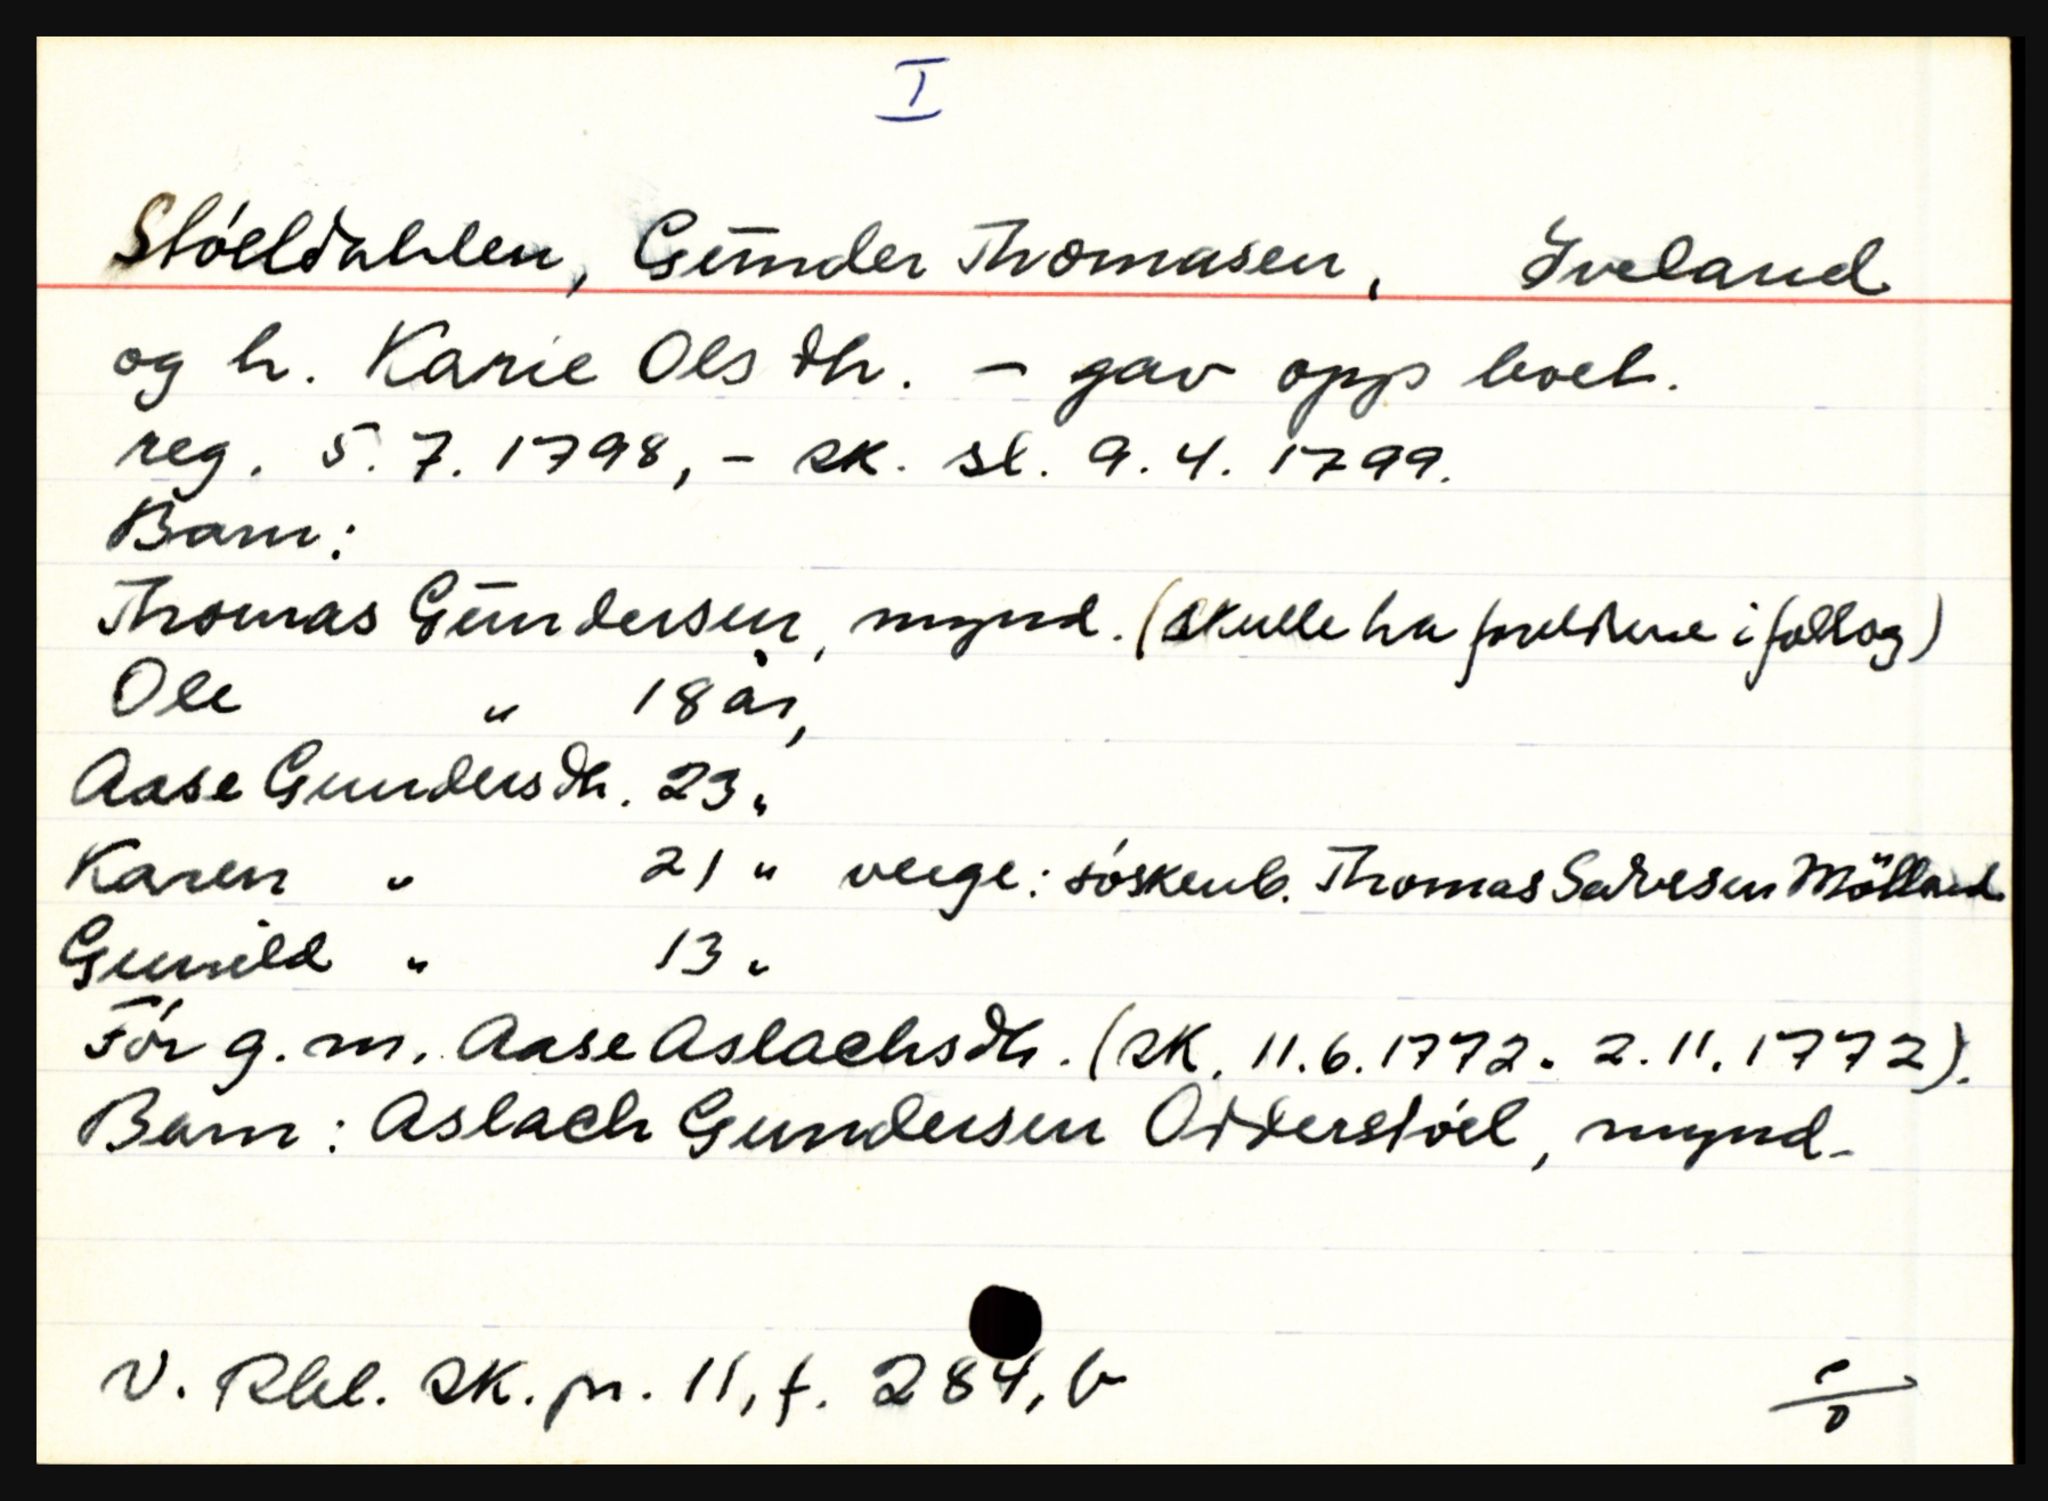 I
Stóeldahlen, Günder Thomasen, Iveland
og h. Karie Olsdh. - gav opp boet.
reg. 5.7.1798, - sk. sl. 9.4.1799.
Barn:
Thomas Gündersen, mynd. (skulle ha foreldrene i følloog)
Ole " 18 år,
Aase Gundersdh. 23 "
Karen " 21 " verge: sóskenb. Thomas Salvesen Mölland
Gunild " 13 "
Fór g. m. Aase Aslachsdh. (sk. 11.6.1772. 2.11.1772).
Barn: Aslach Gundersen Odderstóel, mynd.
V. Rbl. sk. pr. 11, f. 284, b